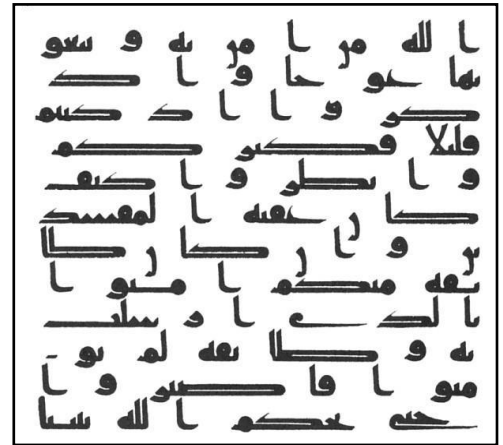 الله من امن به وتبغو
نها عوجا واذ
كروا اذ كنتم
قليلا فكثركم
وانظروا كيف
كان عقبة المفسد
ين وان كان طا
ئفة منكم امنوا
بالذي ارسلت
به وطائفة لم يؤ
منوا فاصبروا
حتى يحكم الله بيننا